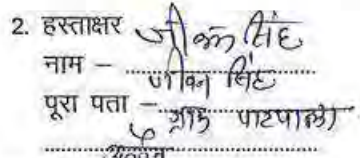 2. हस्ताक्षर जीवन सिंह
नाम – जीवन सिंह
पूरा पता – ग्राम